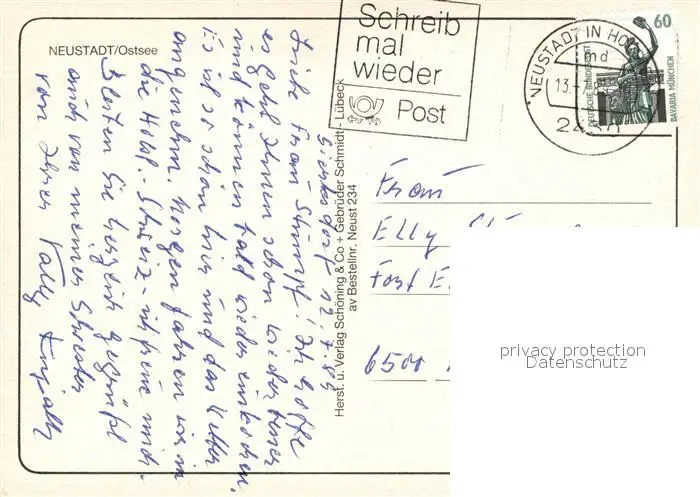 NEUSTADT/Ostsee
Schreib
mal
wieder
Post
NEUSTADT IN HO
md
13.-
2430
60
DEUTSCHE BUNDESPOST
BAVARIA MÜNCHEN
12.7.89
Liebe Frau Stumpf! Ich hoffe
es geht Ihnen schon wieder besser
und können bald wieder einkaufen.
Es ist so schön hier und das Wetter
angenehm. Morgen fahren wir in
die Holst.-Schweiz - ich freue mich.
Seien Sie herzlich gegrüßt
auch von meiner Schwester
von Ihrer
Herst. u. Verlag Schöning & Co + Gebrüder Schmidt, Lübeck
av Bestellnr. Neust 234
Frau
Elly
6500
privacy protection
Datenschutz